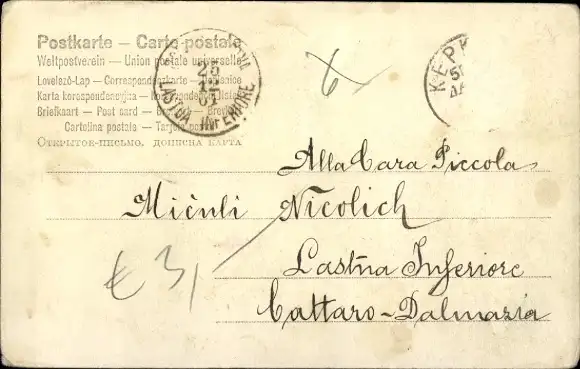 Postkarte — Carte postale
Weltpostverein — Union postale universelle
Levelező-Lap — Correspondenzkarte — Dopisnice
Karta korespondencyjna — Korespondenční lístek
Briefkaart — Post card —
Cartolina postale — Tarjeta postal
Открытое-письмо, дописна карта
28
12
LASTUA INFERIORE
ΚΕΡΚ
Alla Cara Piccola
Mičuli Nicolich
Lastua Inferiore
Cattaro-Dalmazia
€ 3,-